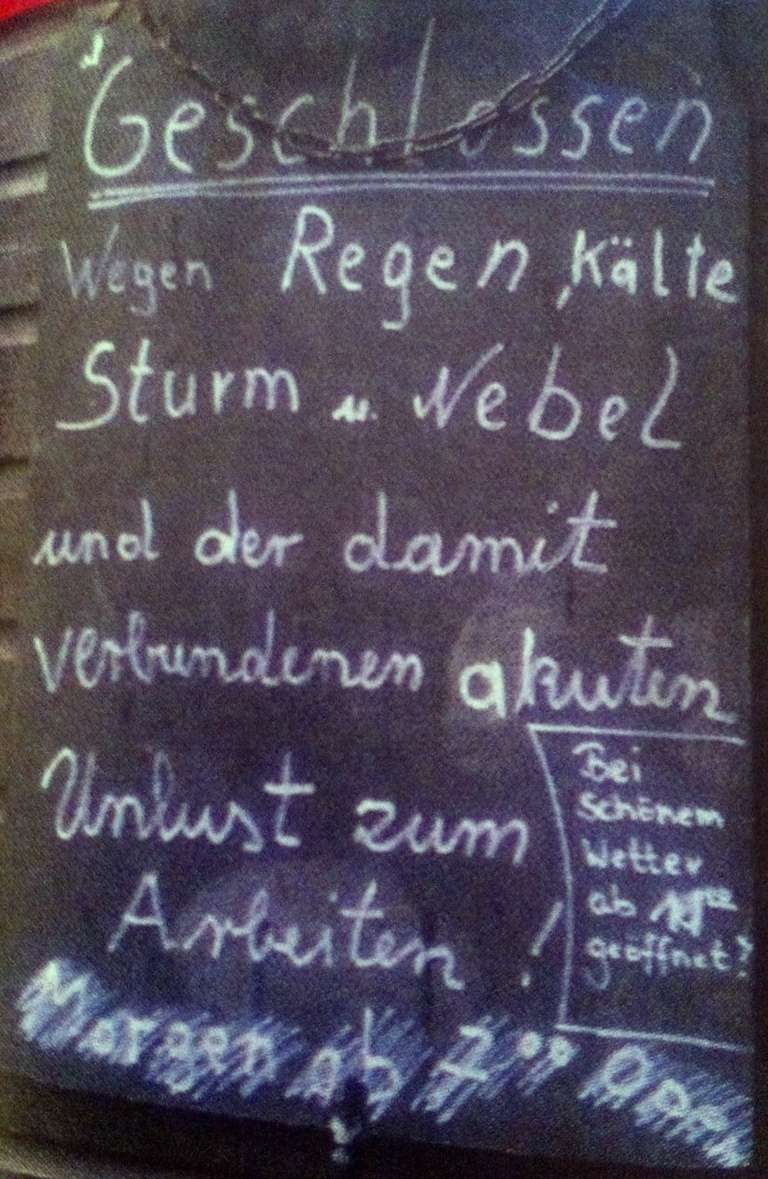 Geschlossen
Wegen Regen, Kälte
Sturm u. Nebel
und der damit
verbundenen akuten
Unlust zum
Arbeiten!
Bei
Schönem
Wetter
ab
geöffnet?
Morgen ab 7°°